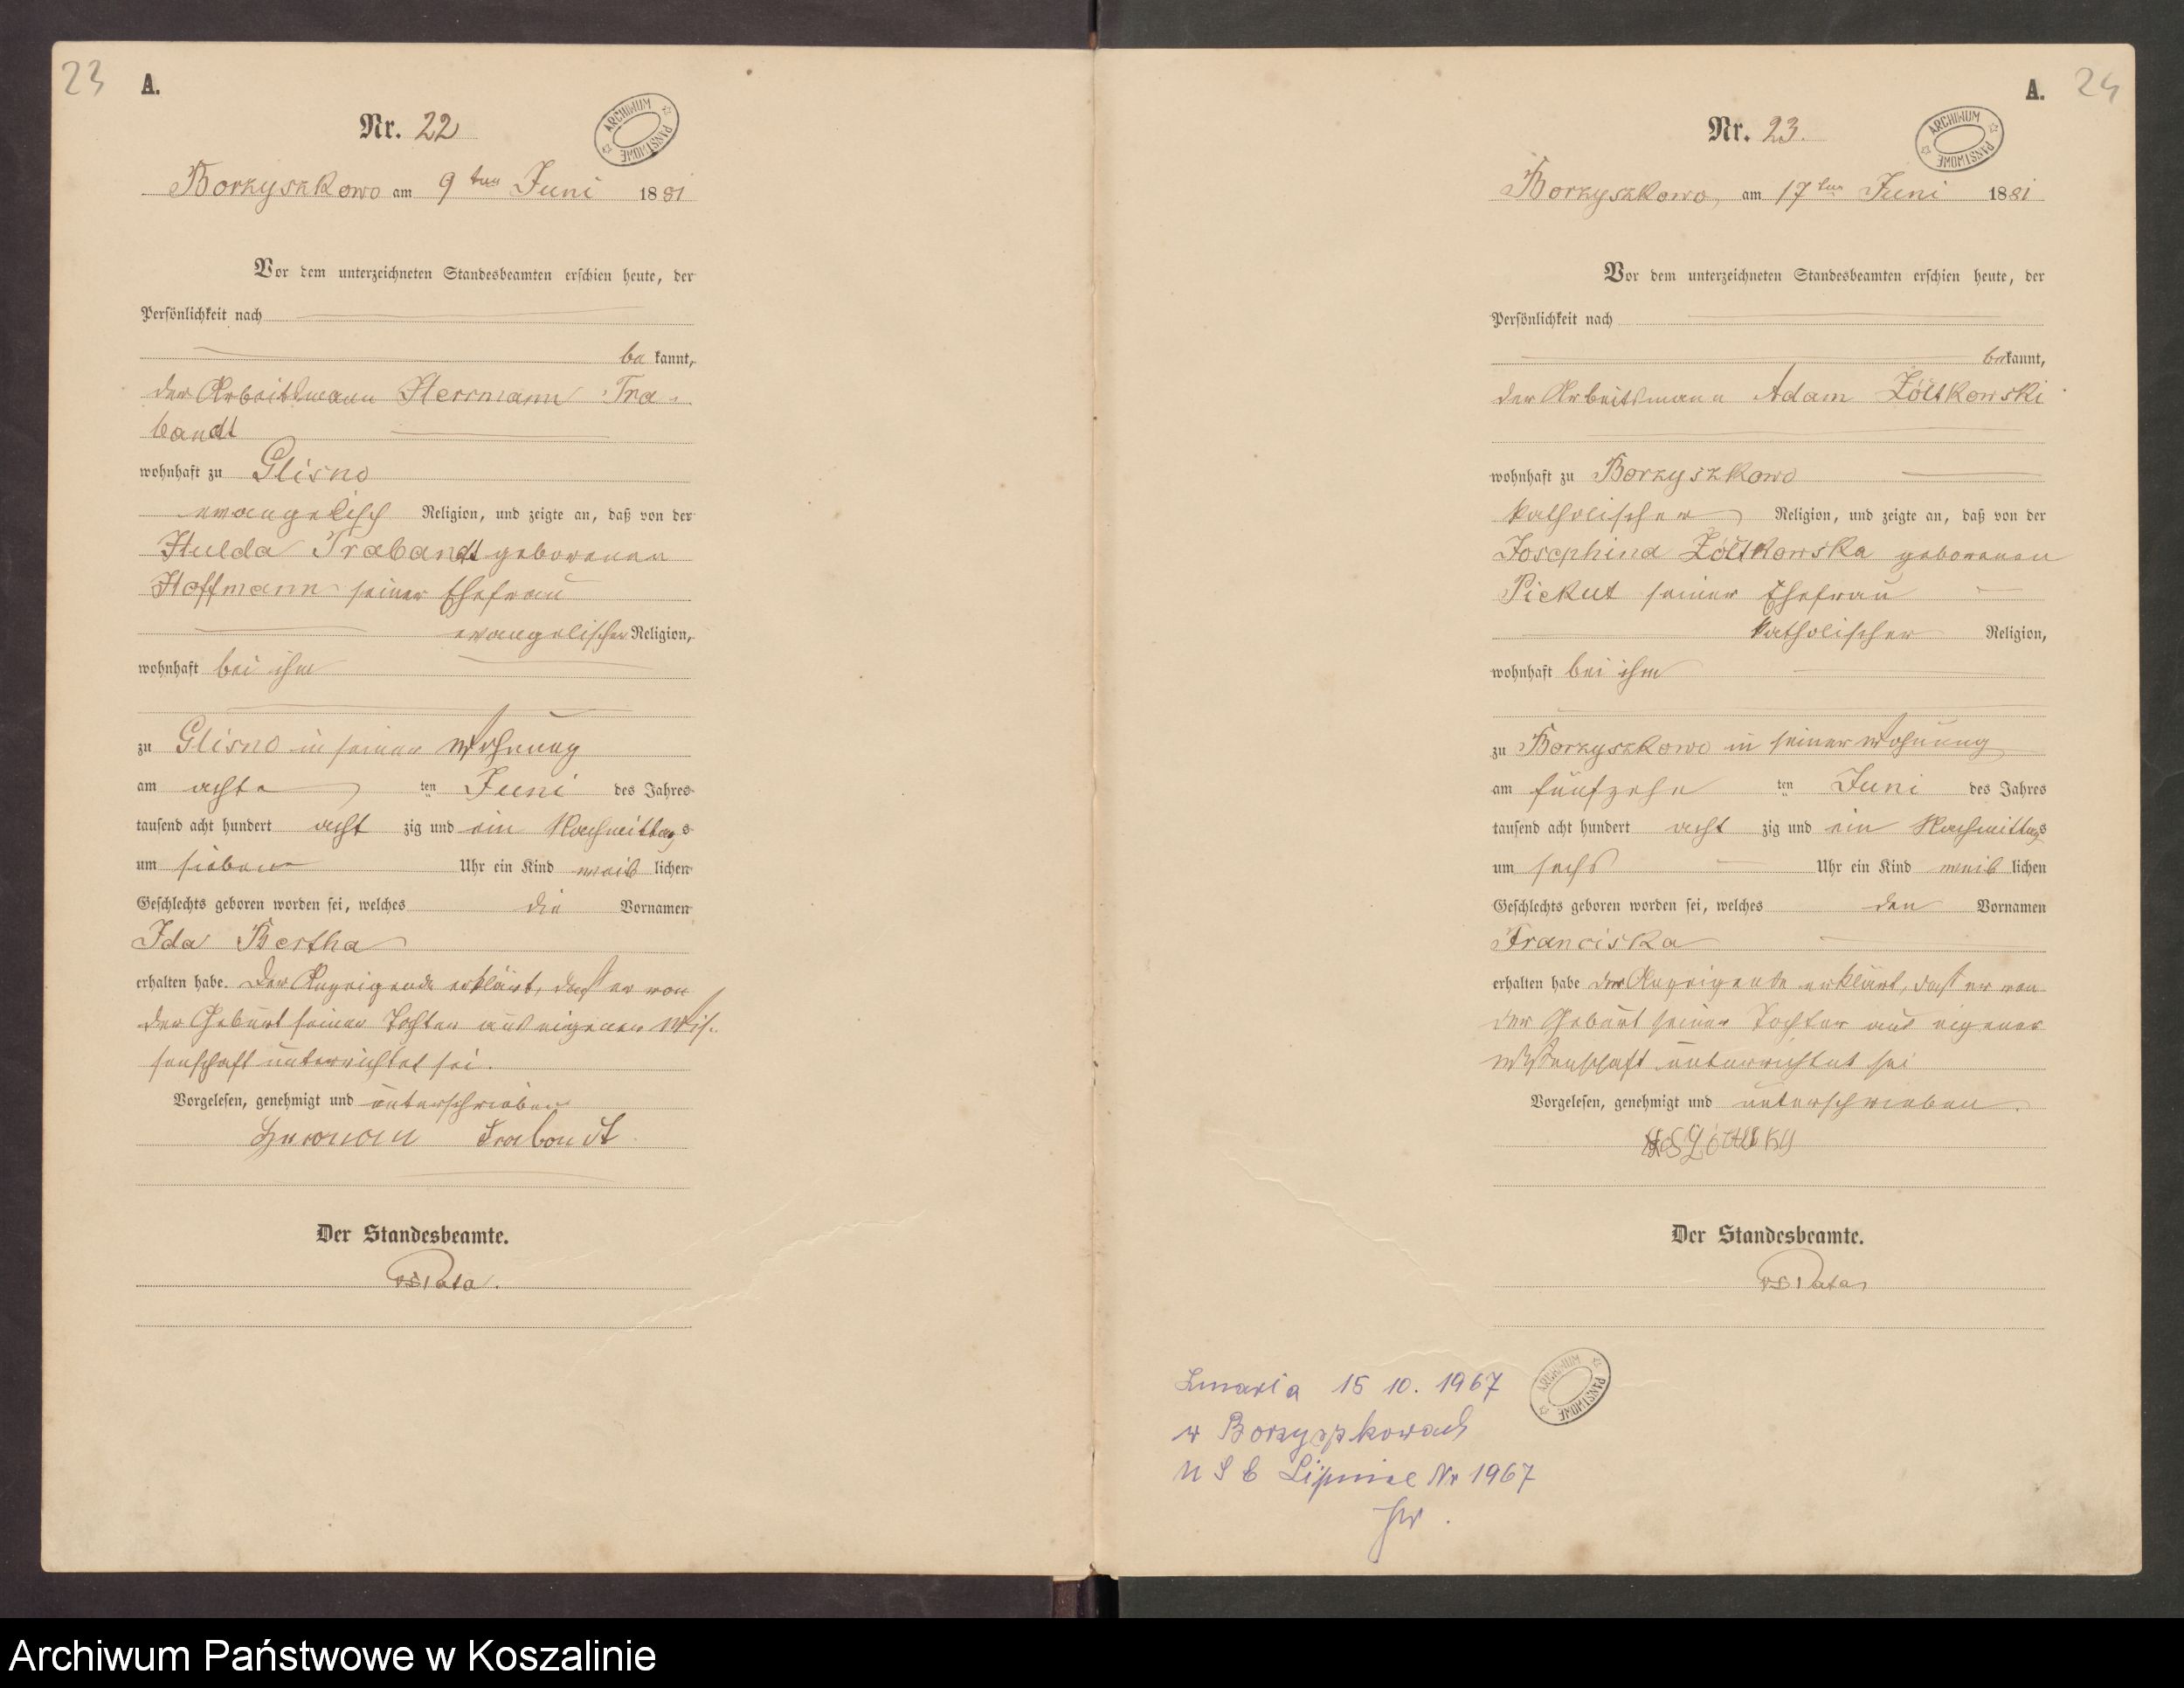 23
A.
Nr. 22
ARCHIWUM PAŃSTWOWE
Borzyszkowo am 9 ten Juni 1881
Vor dem unterzeichneten Standesbeamten erschien heute, der
Persönlichkeit nach
be kannt,
der Arbeitsmann Herrmann Tra-
bandt
wohnhaft zu Glisno
evangelisch Religion, und zeigte an, daß von der
Hulda Trabandt geborenen
Hoffmann seiner Ehefrau
evangelischer Religion,
wohnhaft bei ihm
zu Glisno in seiner Wohnung
am achte ten Juni des Jahres
tausend acht hundert acht zig und ein Nachmittags
um sieben Uhr ein Kind weib lichen
Geschlechts geboren worden sei, welches die Vornamen
Ida Bertha
erhalten habe. Der Anzeigende erklärt, daß er von
der Geburt seiner Tochter aus eigener Wis-
senschaft unterrichtet sei.
Vorgelesen, genehmigt und unterschrieben
Herman Trabandt
Der Standesbeamte.
A. 24
Nr. 23.
ARCHIWUM PAŃSTWOWE
Borzyszkowo, am 17 ten Juni 1881
Vor dem unterzeichneten Standesbeamten erschien heute, der
Persönlichkeit nach
bekannt,
der Arbeitsmann Adam Żółtkowski
wohnhaft zu Borzyszkowo
katholischer Religion, und zeigte an, daß von der
Josephina Żółtkowska geborenen
Piekut seiner Ehefrau
katholischer Religion,
wohnhaft bei ihm
zu Borzyszkowo in seiner Wohnung
am fünfzehn ten Juni des Jahres
tausend acht hundert acht zig und ein Nachmittags
um sechs Uhr ein Kind weib lichen
Geschlechts geboren worden sei, welches den Vornamen
Franciska
erhalten habe der Anzeigende erklärt, daß er von
der Geburt seiner Tochter aus eigener
Wissenschaft unterrichtet sei
Vorgelesen, genehmigt und unterschrieben.
Der Standesbeamte.
Zmarła 15 10. 1967
w Borzyszkowach
USC Lipnica Nr 1967
ARCHIWUM PAŃSTWOWE
Archiwum Państwowe w Koszalinie